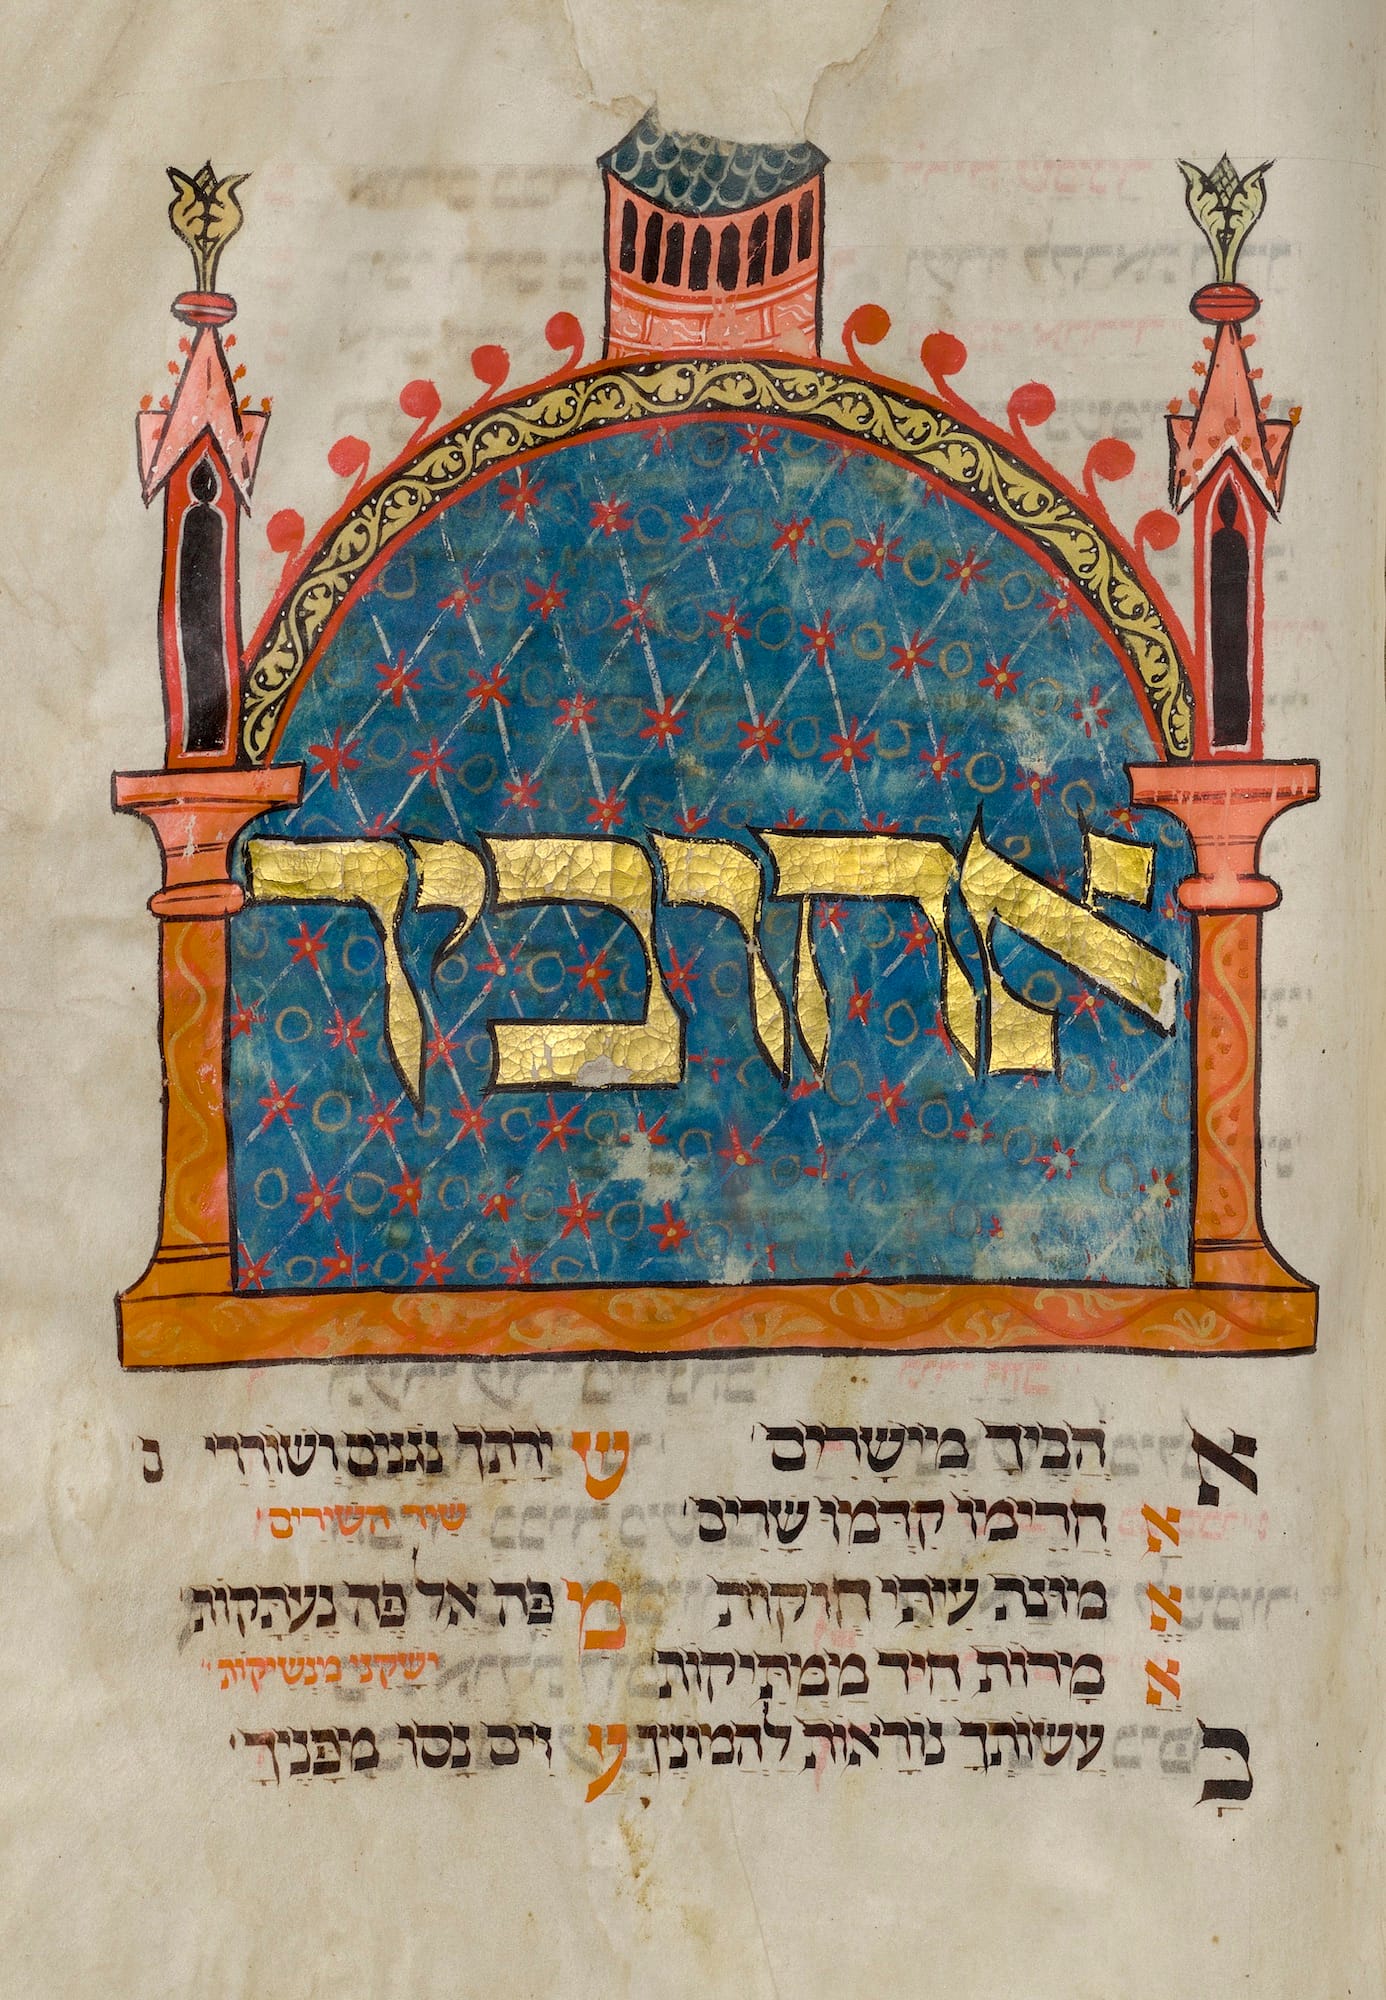 אהוביך
אהביך מיישרים שירתך נגנים ושוררי
אחרימו קדמו שרים שיר השירים
אמונת עיתי חוקות מפה אל פה נעתקות
אמרות חיך ממתיקות ישקני מנשיקות
בעשותך נוראות להמוניך עזים נסו מפניך